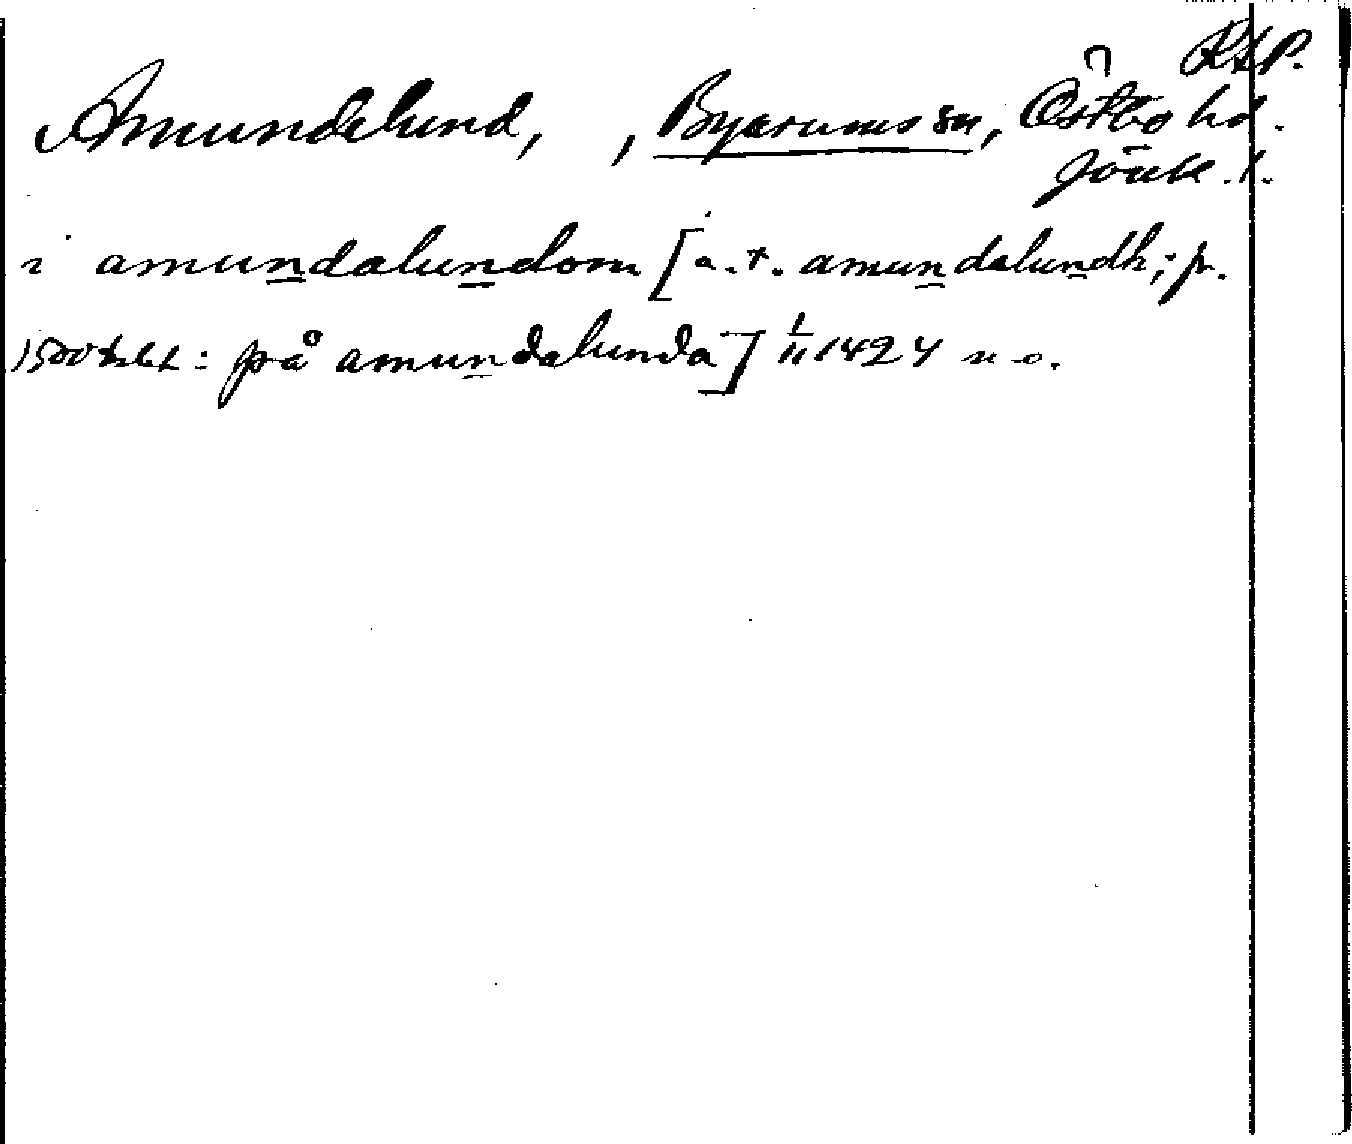 RAP.
Amundelund, , Byarums sn, Östbo hd.
Jönk. l.
i amundalundom [a. t. amundalundh; pr.
1500talet: på amundalunda] 1/11 1424 n o.